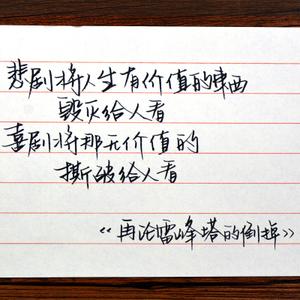 悲剧将人生有价值的東西
毁灭给人看
喜剧将那无价值的
撕破给人看
《再论雷峰塔的倒掉》